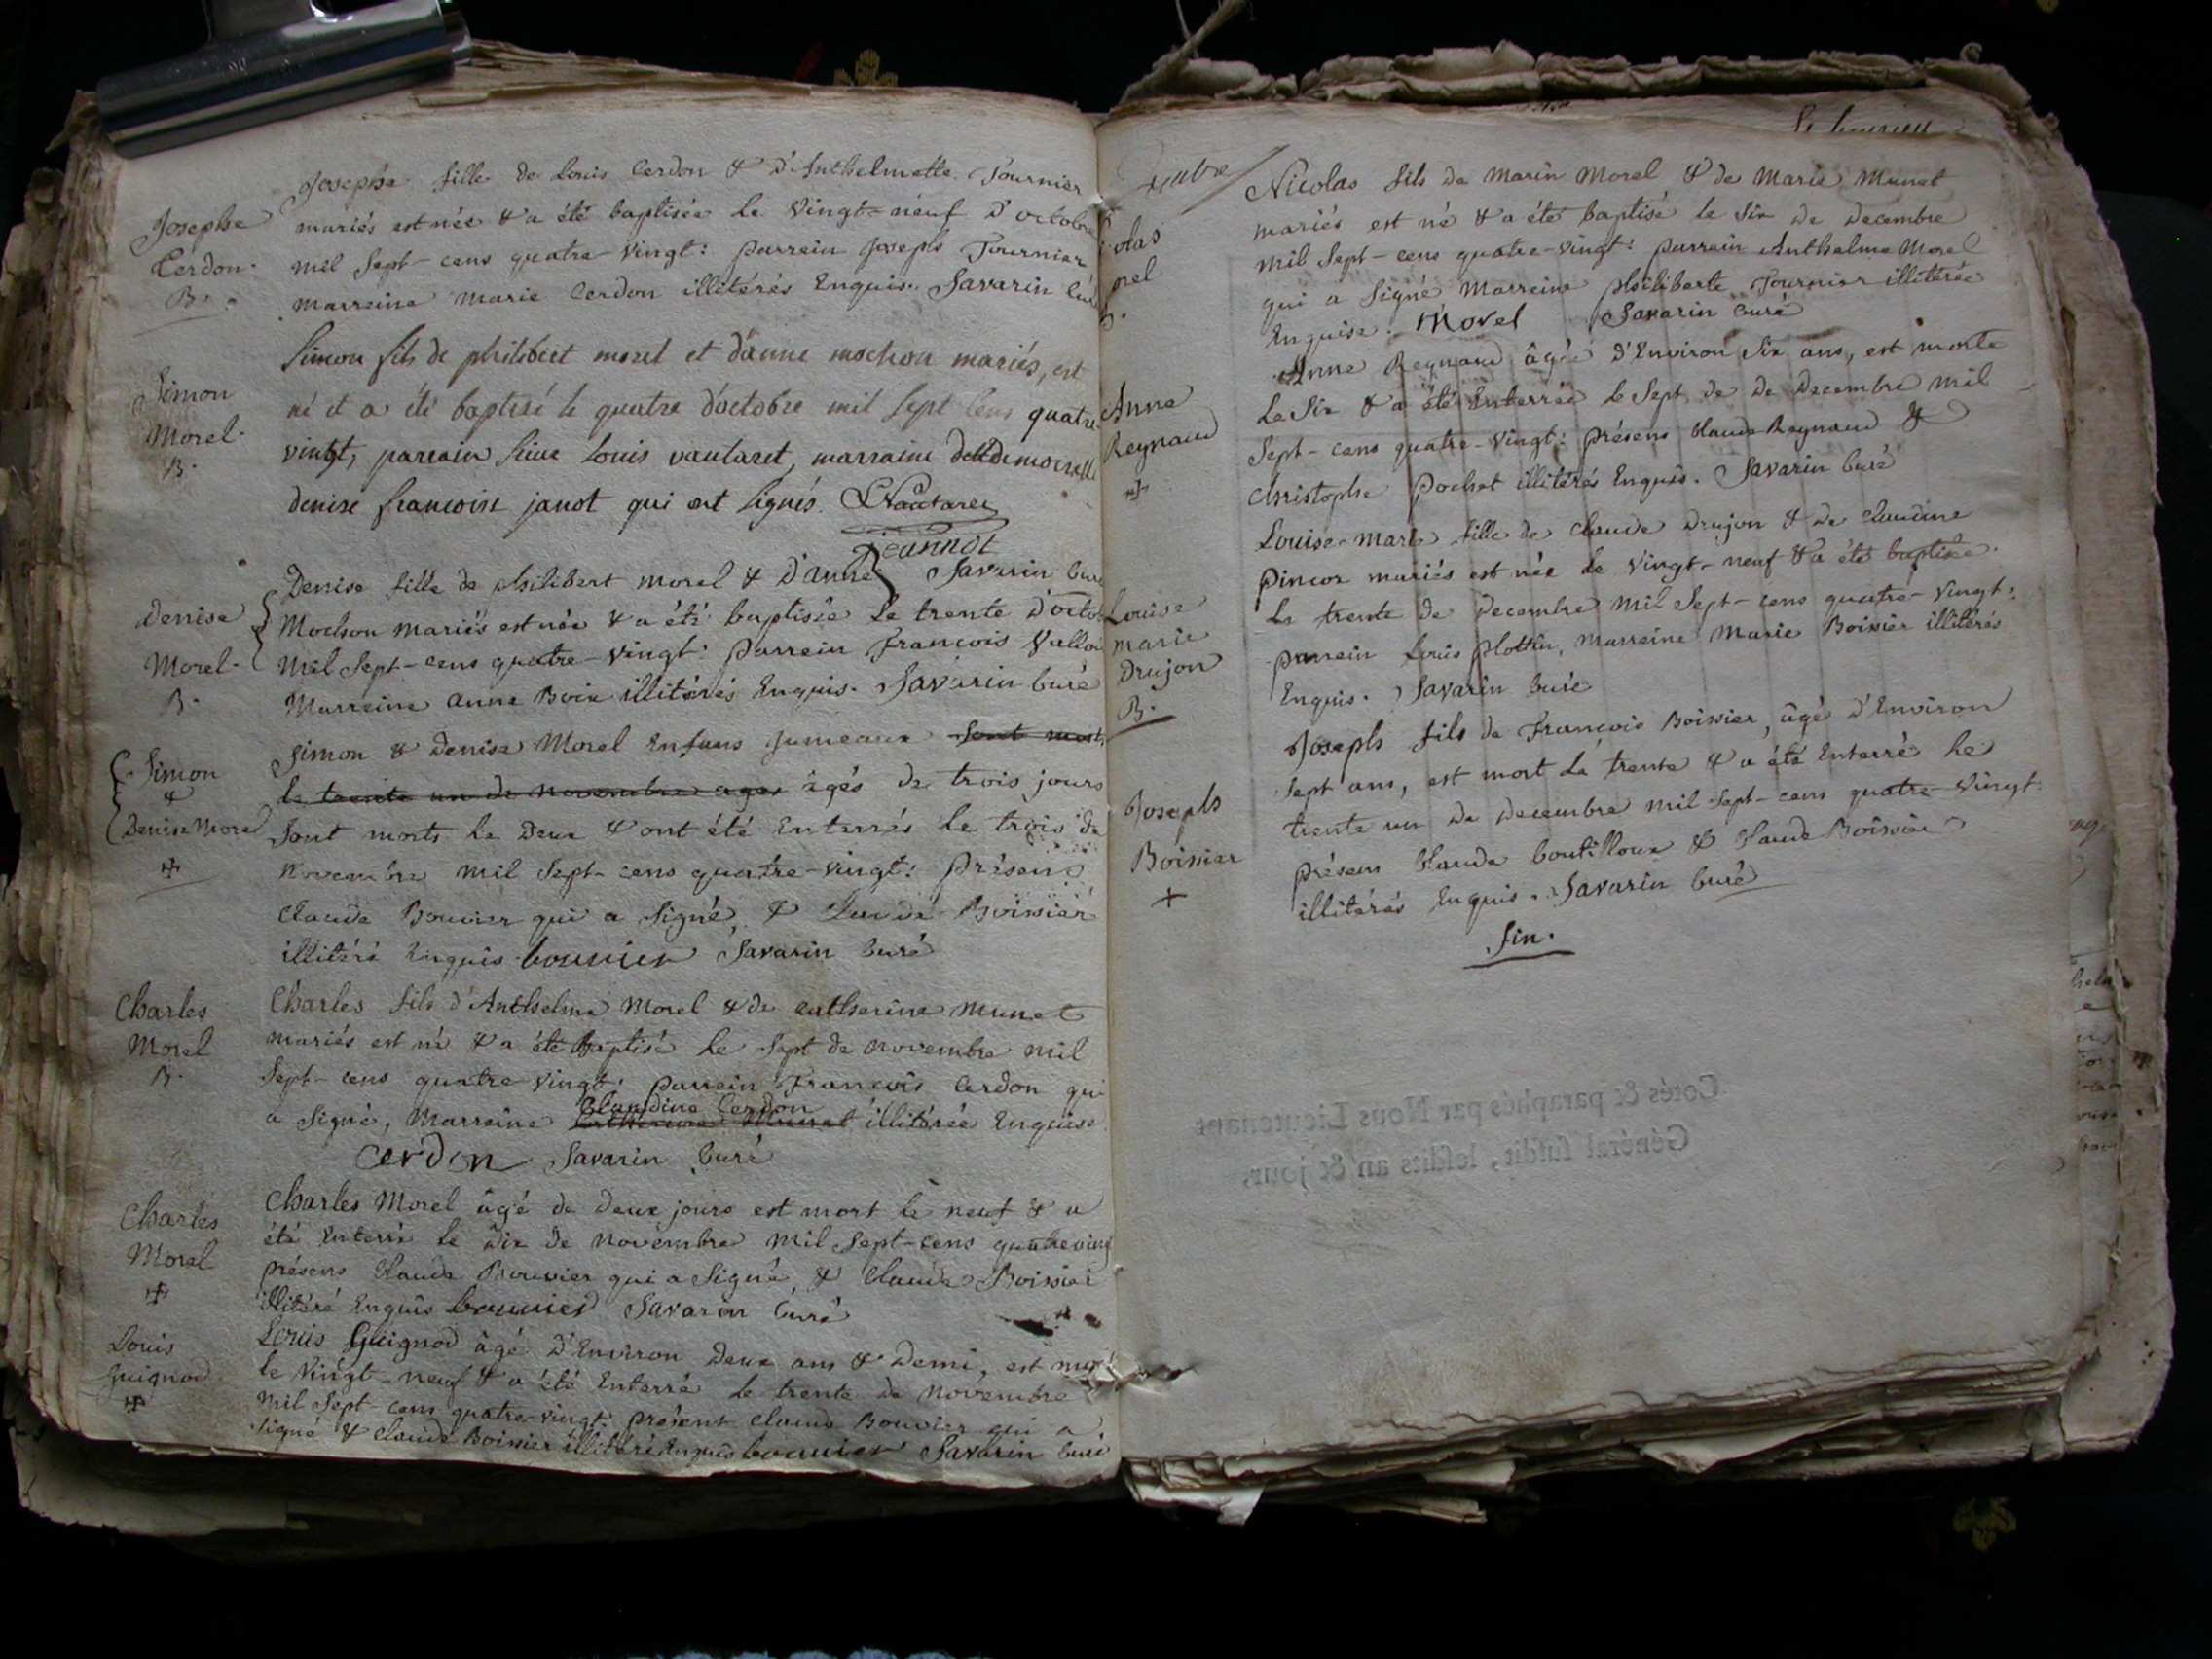 Josephe fille de Louis Cerdon & d'Anthelmette Fournier
Josephe
Cerdon.
B.
mariés est née & a été baptisée le Vingt-neuf d'octobre
mil Sept-cens quatre-Vingt: parrein Joseph Fournier
marreine marie Cerdon illitérés Enquis. Savarin Curé
Simon
Morel.
B.
Simon fils de philibert morel et d'anne mochon mariés, est
né et a été baptisé le quatre d'octobre mil sept cens quatre
vingt, parrain sieur Louis vautaret, marraine
denise francoise janot qui ont signés. Vautaret
jeannot
Savarin Curé
Denise
Morel.
B.
Denise fille de philibert morel & d'anne
Mochon mariés est née & a été baptisée Le trente d'octo
mil Sept-cens quatre-Vingt: parrein François
Marreine anne Boix illitérés Enquis. Savarin Curé
Simon
&
Denise Morel
Simon & Denise Morel Enfans jumeaux sont morts
le trente un de novembre ages âgés de trois jours
sont morts le Deux & ont été Enterrés le trois de
Novembre mil Sept-cens quatre-vingt: présens
Claude Bouvier qui a signé, & Claude Boissier
illitéré Enquis bouvier Savarin Curé
Charles
Morel
B.
Charles fils d'Anthelme Morel & de catherine Munet
mariés est né & a été Baptisé le Sept de novembre mil
Sept-cens quatre-vingt: parrein François Cerdon qui
Claudine Cerdon
a Signé, Marreine Catherine Munet illitérée Enquise
Cerdon Savarin Curé
Charles
Morel
Charles Morel âgé de Deux jours est mort le neuf & a
été Enterré le Dix de novembre mil Sept-cens quatre ving
présens Claude Bouvier qui a Signé & Claude Boissier
illitéré Enquis bouvier Savarin Curé
Louis
Guignod
Louis Guignod âgé d'Environ Deux ans & Demi, est mort
le Vingt-neuf & a été Enterré le trente de novembre
mil Sept-cens quatre-vingt: présens Claude Bouvier qui a
signé & Claude Boissier illitéré Enquis bouvier Savarin Curé
olas
orel
B.
Nicolas fils de Marin Morel & de Marie Munet
mariés est né & a été baptisé le Six de Decembre
mil Sept-cens quatre-vingt: parrein Anthelme Morel
qui a Signé Marreine philiberte Fournier illitérée
Enquise. Morel Savarin Curé
Anne
Reynaud
Anne Reynaud âgée d'Environ Six ans, est morte
Le Six & a été Enterrée le Sept de de Decembre mil
Sept-cens quatre-Vingt: présens Claude Reynaud &
Christophe Pochet illitérés Enquis. Savarin Curé
Louise
marie
Drujon
B.
Louise-marie fille de Claude Drujon & de Claudine
Pincor mariés est née Le Vingt-neuf & a été baptisée
Le trente de Decembre mil Sept-cens quatre-Vingt:
parrein Louis Plottin, marreine Marie Boissier illitérés
Enquis. Savarin Curé
Joseph
Boissier
Joseph fils de François Boissier, âgé d'Environ
Sept ans, est mort Le trente & a été Enterré le
trente un de Decembre mil Sept-cens quatre-Vingt:
présens Claude boutilloux & Claude Boissier
illitérés Enquis. Savarin Curé
Fin.
Cotés & paraphés par Nous Lieutenant
Général susdit, lesdits an & jour,